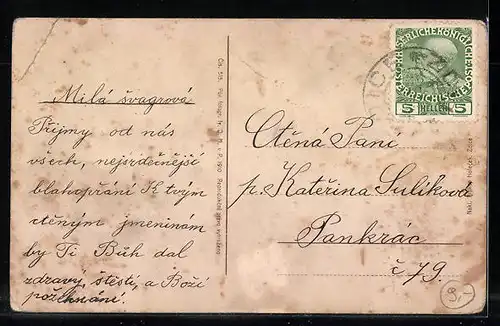 Milá švagrová
Přijmy od nás
všech, nejsrdečnější
blahapřání K tvým
ctěným jmeninám
by Ti Bůh dal
zdravý, štěstí, a Boží
požehnání.
Ctěná Paní
p. Kateřina Sulíková
Pankrác
č 79.
KAISERLICHE KÖNIGLICHE
ÖSTERREICHISCHE
5 HELLER 5